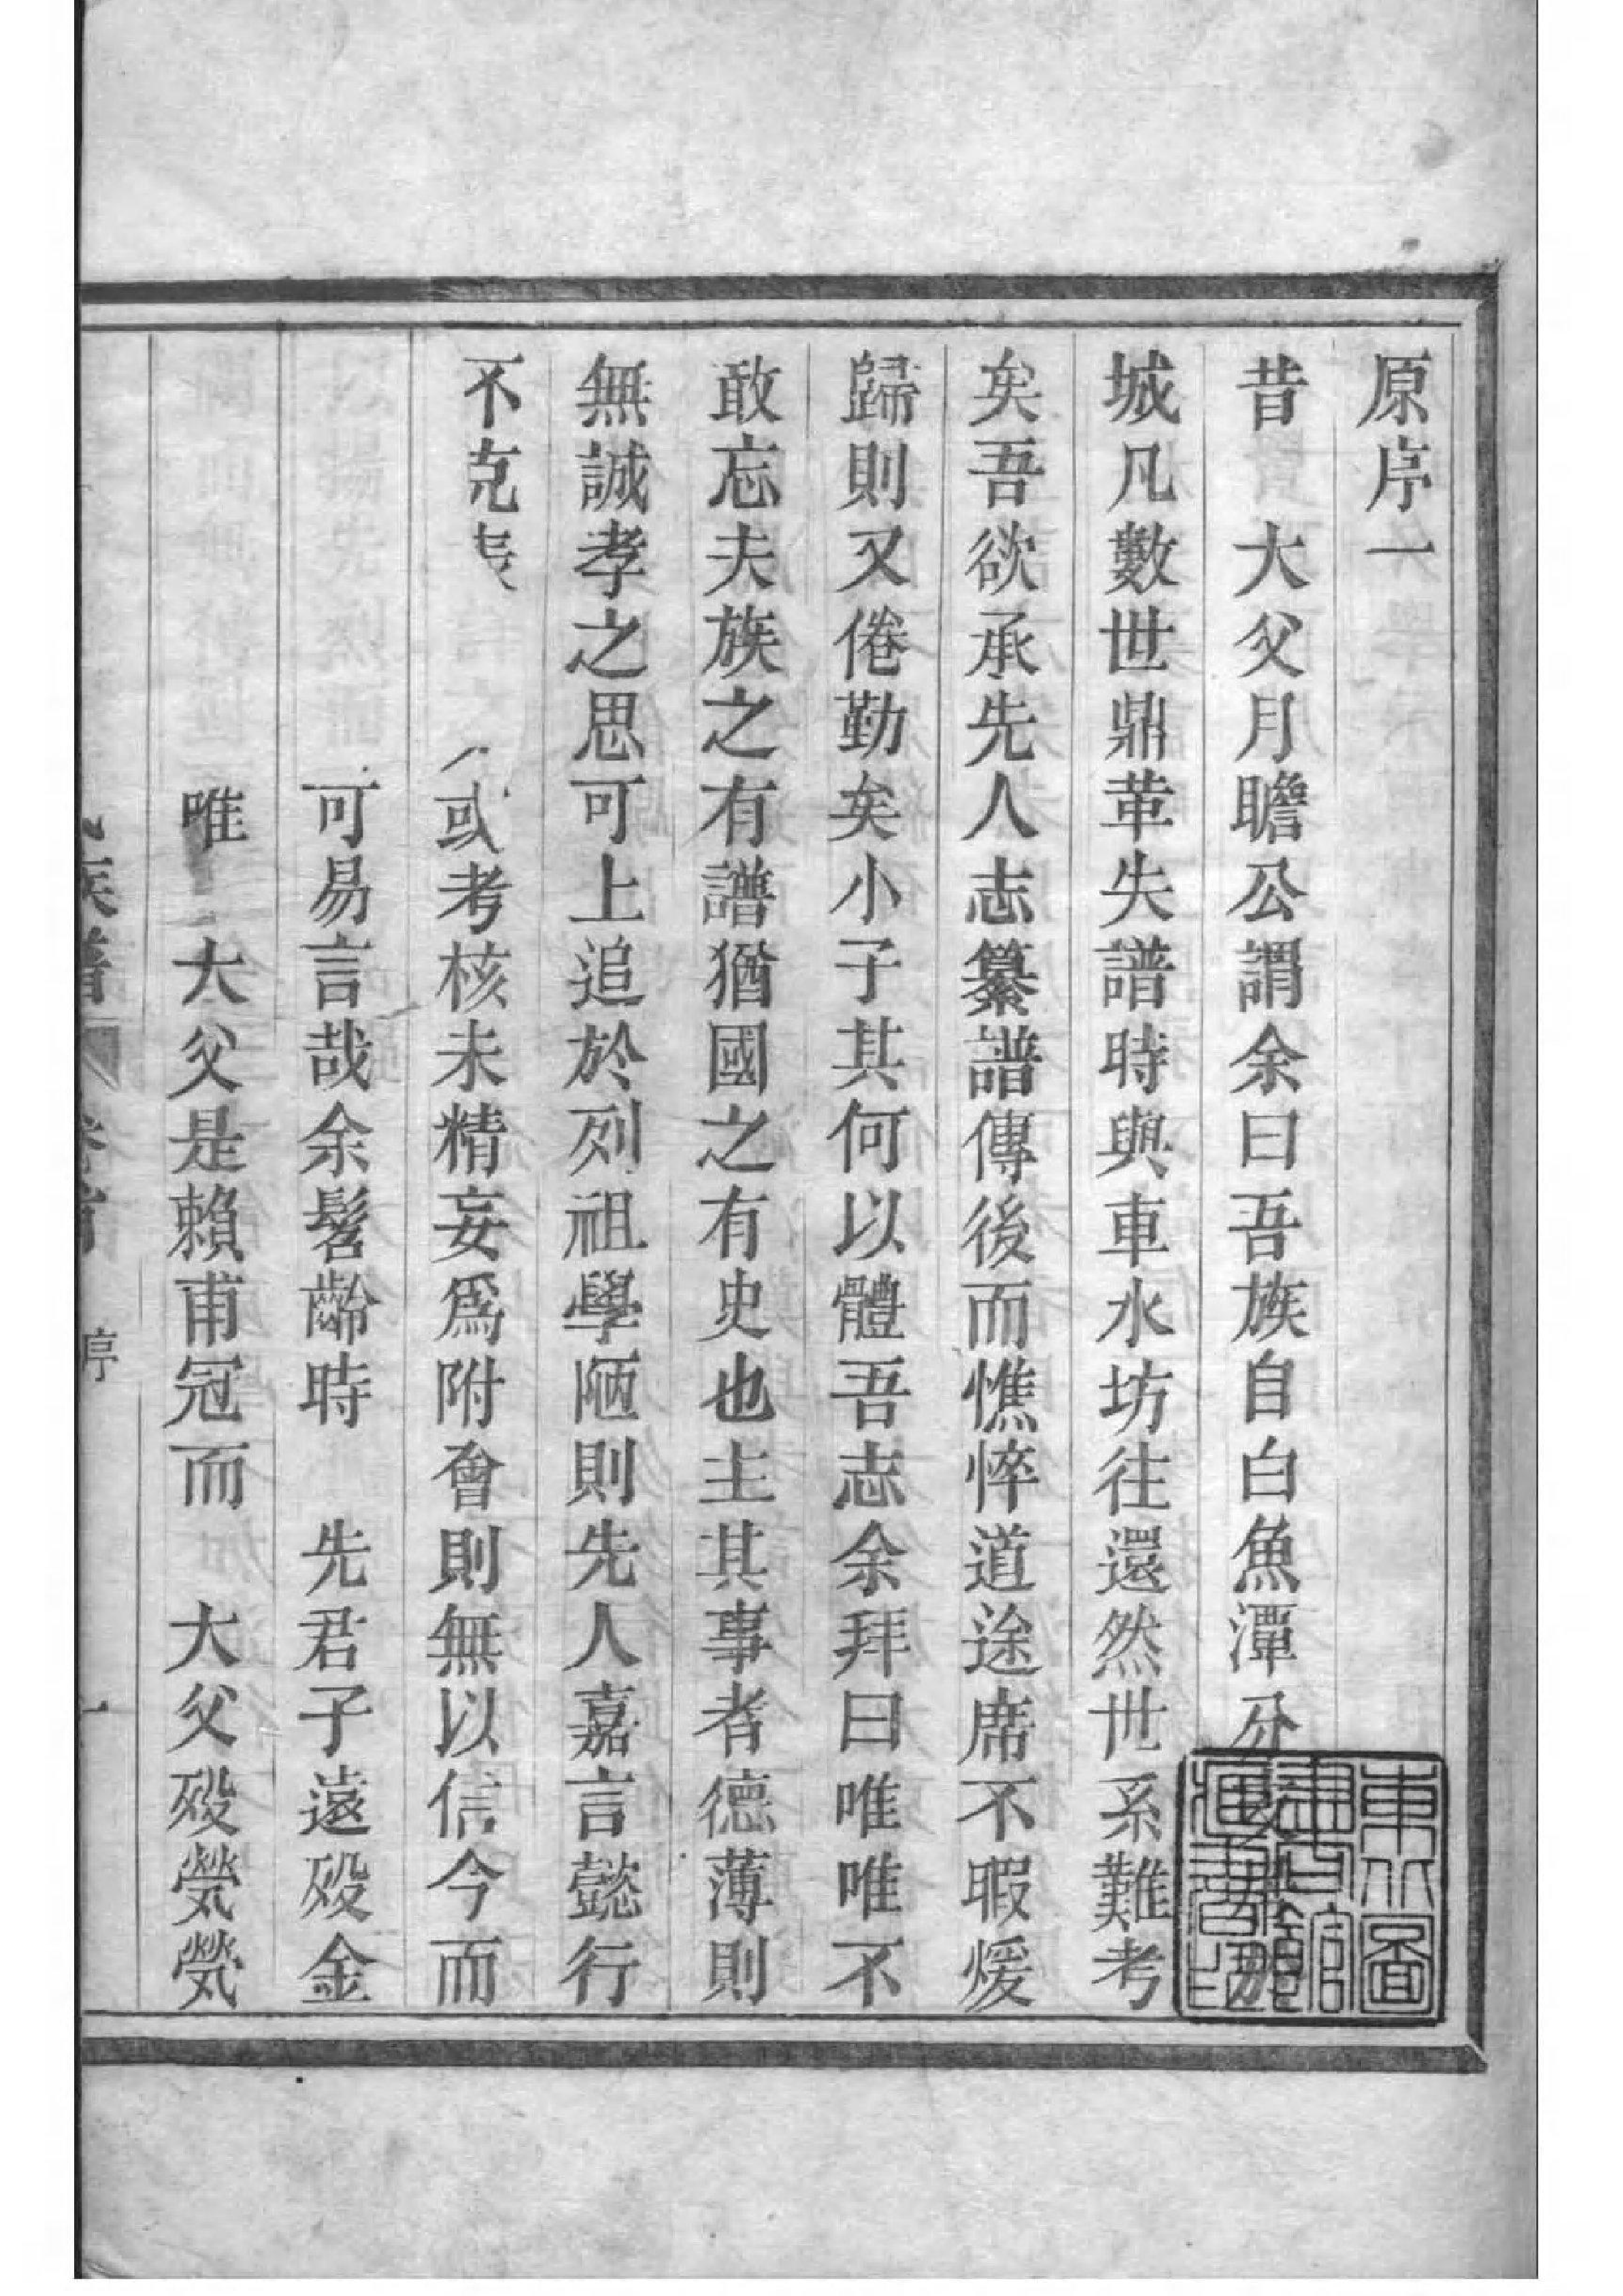 原序一
昔　大父月瞻公謂余曰吾族自白魚潭分
城凡數世鼎革失譜時與車水坊往還然世系難考
矣吾欲承先人志纂譜傳後而憔悴道途席不暇煖
歸則又倦勤矣小子其何以體吾志余拜曰唯唯不
敢忘夫族之有譜猶國之有史也主其事者德薄則
無誠孝之思可上追於列祖學陋則先人嘉言懿行
不克表
或考核未精妄爲附會則無以信今而
可易言哉余髫齡時　先君子遠歿金
唯　大父是賴甫冠而　大父歿煢煢
族譜　卷首　序　一
東北圖書館所藏善本